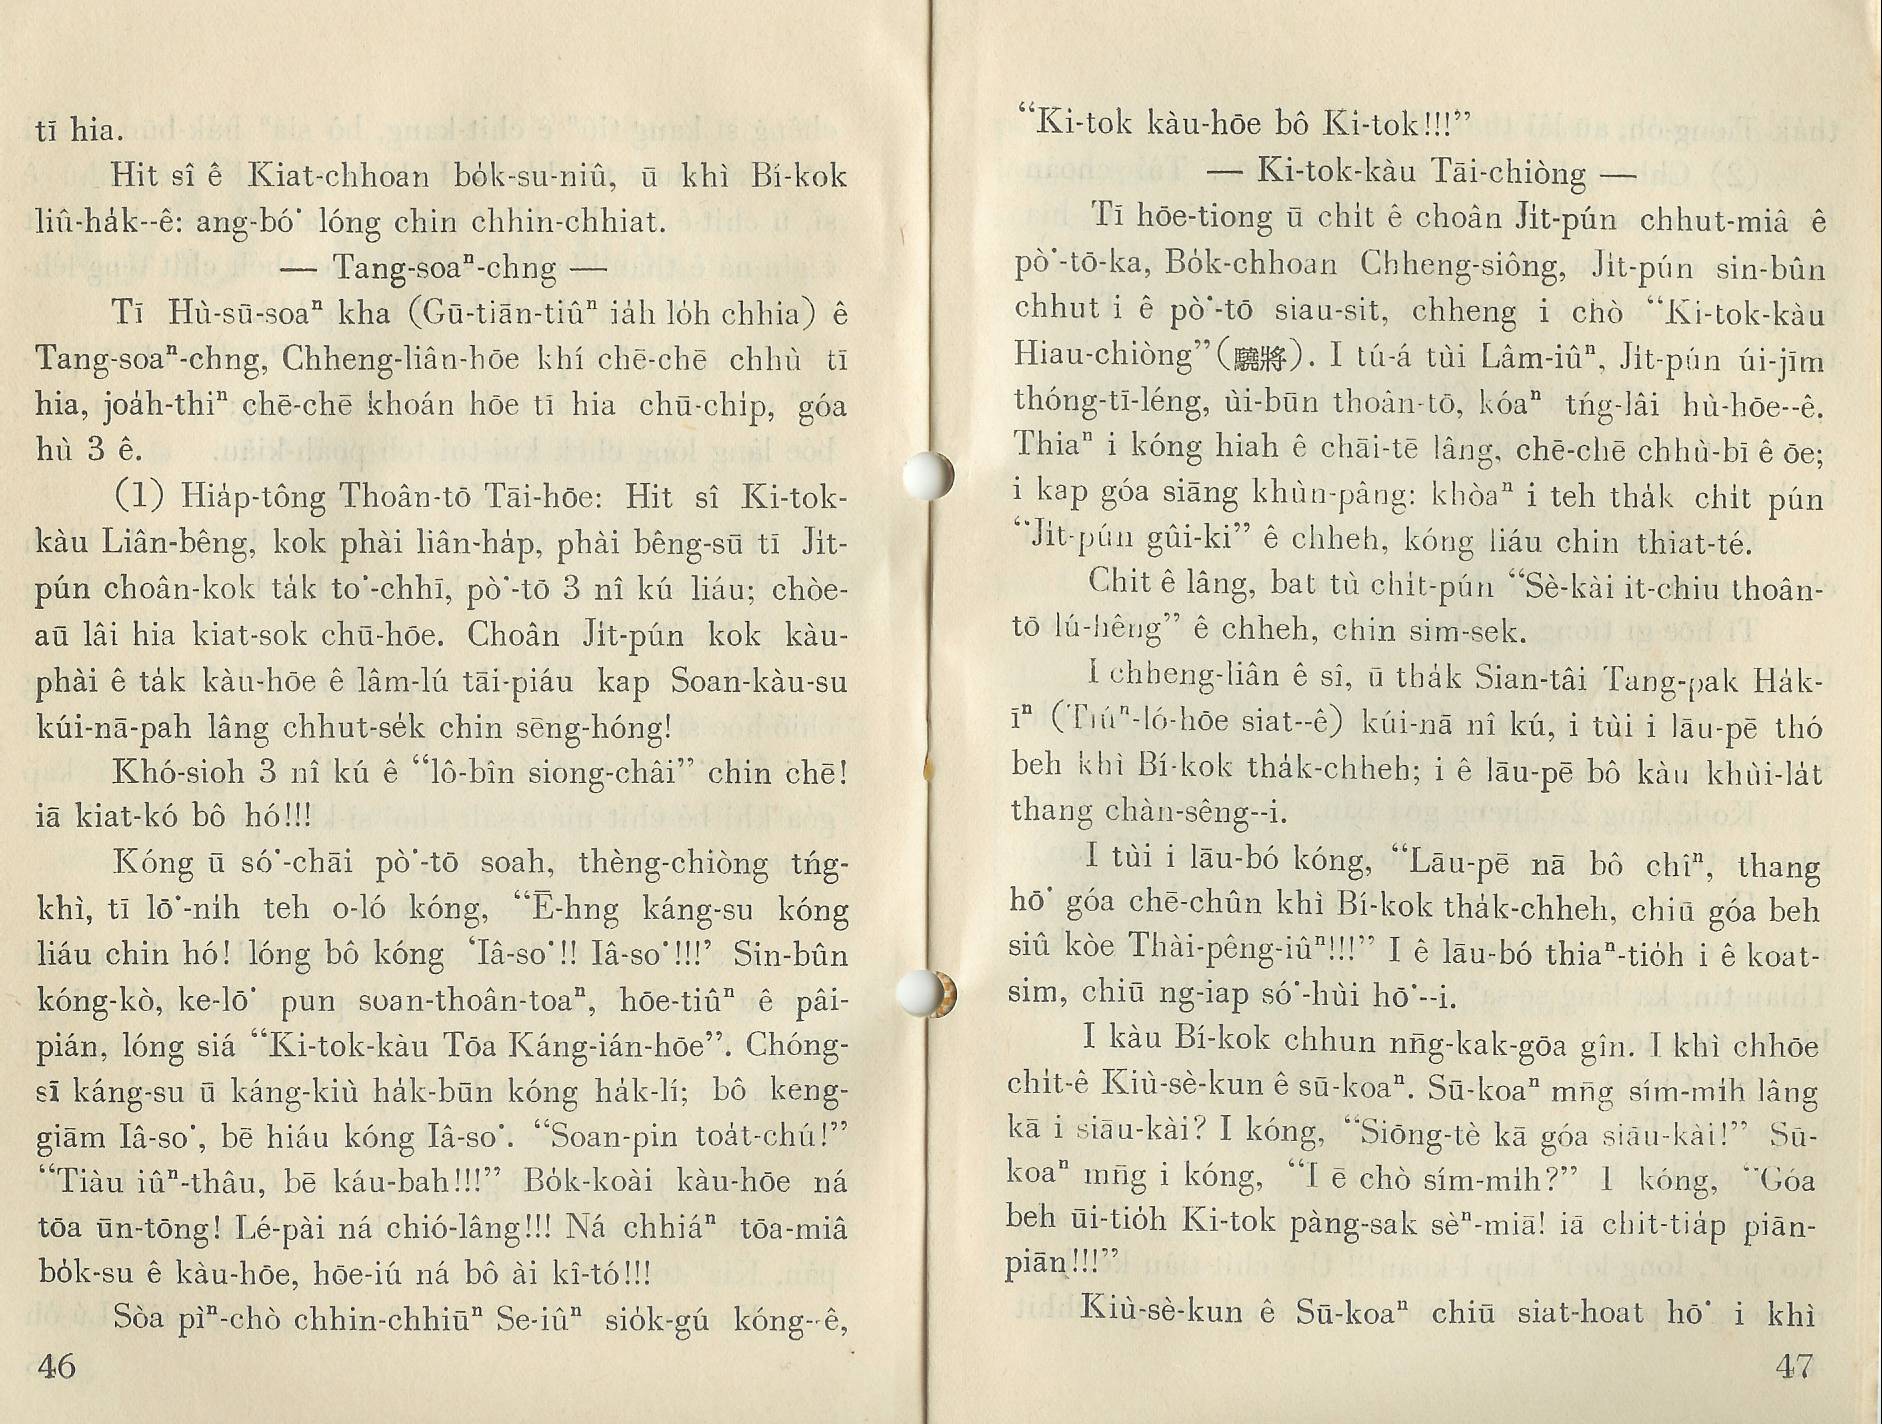 tī hia.
Hit sî ê Kiat-chhoan bo̍k-su-niû, ū khì Bí-kok
liû-ha̍k--ê: ang-bó͘ lóng chin chhin-chhiat.
— Tang-soaⁿ-chng —
Tī Hù-sū-soaⁿ kha (Gū-tiān-tiûⁿ ia̍h lo̍h chhia) ê
Tang-soaⁿ-chng, Chheng-liân-hōe khí chē-chē chhù tī
hia, joa̍h-thiⁿ chē-chē khoán hōe tī hia chū-chi̍p, góa
hù 3 ê.
(1) Hia̍p-tông Thoân-tō Tāi-hōe: Hit sî Ki-tok-
kàu Liân-bêng, kok phài liân-ha̍p, phài bêng-sū tī Ji̍t-
pún choân-kok ta̍k to͘-chhī, pò͘-tō 3 nî kú liáu; chòe-
aū lâi hia kiat-sok chū-hōe. Choân Ji̍t-pún kok kàu-
phài ê ta̍k kàu-hōe ê lâm-lú tāi-piáu kap Soan-kàu-su
kúi-nā-pah lâng chhut-se̍k chin sēng-hóng!
Khó-sioh 3 nî kú ê “lô-bîn siong-châi” chin chē!
iā kiat-kó bô hó!!!
Kóng ū só͘-chāi pò͘-tō soah, thèng-chiòng tńg-
khì, tī lō͘-ni̍h teh o-ló kóng, “Ē-hng káng-su kóng
liáu chin hó! lóng bô kóng ‘Iâ-so͘!! Iâ-so͘!!!’ Sin-bûn
kóng-kò, ke-lō͘ pun soan-thoân-toaⁿ, hōe-tiûⁿ ê pâi-
pián, lóng siá “Ki-tok-kàu Tōa Káng-ián-hōe”. Chóng-
sī káng-su ū káng-kiù ha̍k-būn kóng ha̍k-lí; bô keng-
giām Iâ-so͘, bē hiáu kóng Iâ-so͘. “Soan-pin toa̍t-chú!”
“Tiàu iûⁿ-thâu, bē káu-bah!!!” Bo̍k-koài kàu-hōe ná
tōa ūn-tōng! Lé-pài ná chió-lâng!!! Ná chhiáⁿ tōa-miâ
bo̍k-su ê kàu-hōe, hōe-iú ná bô ài kî-tó!!!
Sòa pìⁿ-chò chhin-chhiūⁿ Se-iûⁿ sio̍k-gú kóng--ê,
46
“Ki-tok kàu-hōe bô Ki-tok!!!”
— Ki-tok-kàu Tāi-chiòng —
Tī hōe-tiong ū chi̍t ê choân Ji̍t-pún chhut-miâ ê
pò͘-tō-ka, Bo̍k-chhoan Chheng-siông, Ji̍t-pún sin-bûn
chhut i ê pò͘-tō siau-sit, chheng i chò “Ki-tok-kàu
Hiau-chiòng”(驍將). I tú-á tùi Lâm-iûⁿ, Ji̍t-pún úi-jīm
thóng-tī-léng, ùi-būn thoân-tō, kóaⁿ tńg-lâi hù-hōe--ê.
Thiaⁿ i kóng hiah ê chāi-tē lâng, chē-chē chhù-bī ê ōe;
i kap góa siāng khùn-pâng: khòaⁿ i teh tha̍k chi̍t pún
“Ji̍t-pún gûi-ki” ê chheh, kóng liáu chin thiat-té.
Chit ê lâng, bat tù chi̍t-pún “Sè-kài it-chiu thoân-
tō lú-hêng” ê chheh, chin sim-sek.
I chheng-liân ê sî, ū tha̍k Sian-tâi Tang-pak Ha̍k-
īⁿ (Tiúⁿ-ló-hōe siat--ê) kúi-nā nî kú, i tùi i lāu-pē thó
beh khì Bí-kok tha̍k-chheh; i ê lāu-pē bô kàu khùi-la̍t
thang chàn-sêng--i.
I tùi i lāu-bó kóng, “Lāu-pē nā bô chîⁿ, thang
hō͘ góa chē-chûn khì Bí-kok tha̍k-chheh, chiū góa beh
siû kòe Thài-pêng-iûⁿ!!!” I ê lāu-bó thiaⁿ-tio̍h i ê koat-
sim, chiū ng-iap só͘-hùi hō͘--i.
I kàu Bí-kok chhun nn̄g-kak-gōa gîn. I khì chhōe
chi̍t-ê Kiù-sè-kun ê sū-koaⁿ. Sū-koaⁿ mn̄g sím-mi̍h lâng
kā i siāu-kài? I kóng, “Siōng-tè kā góa siāu-kài!” Sū-
koaⁿ mn̄g i kóng, “I ē chò sím-mi̍h?” I kóng, “Góa
beh ūi-tio̍h Ki-tok pàng-sak sèⁿ-miā! iā chi̍t-tia̍p piān-
piān!!!”
Kiù-sè-kun ê Sū-koaⁿ chiū siat-hoat hō͘ i khì
47